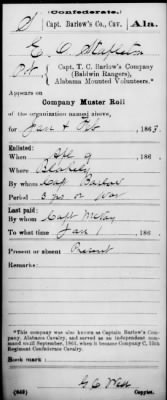 (Confederate.)
S Capt. Barlow's Co., Cav., Ala.
E. C. Stapleton
Pvt., Capt. T. C. Barlow's Company
(Baldwin Rangers),
Alabama Mounted Volunteers.*
Appears on
Company Muster Roll
of the organization named above,
for Jan & Feb, 1863.
Enlisted:
When 186 .
Where Blakely
By whom Capt Barlow
Period 3 yrs or war
Last paid:
By whom Capt
To what time Jan 1, 186 .
Present or absent Present
Remarks:
*This company was also known as Captain Barlow's Company, Alabama Cavalry, and served as an independent command until September, 1863, when it became Company C, 15th Regiment Confederate Cavalry.
Book mark:
G C West
(642) Copyist.